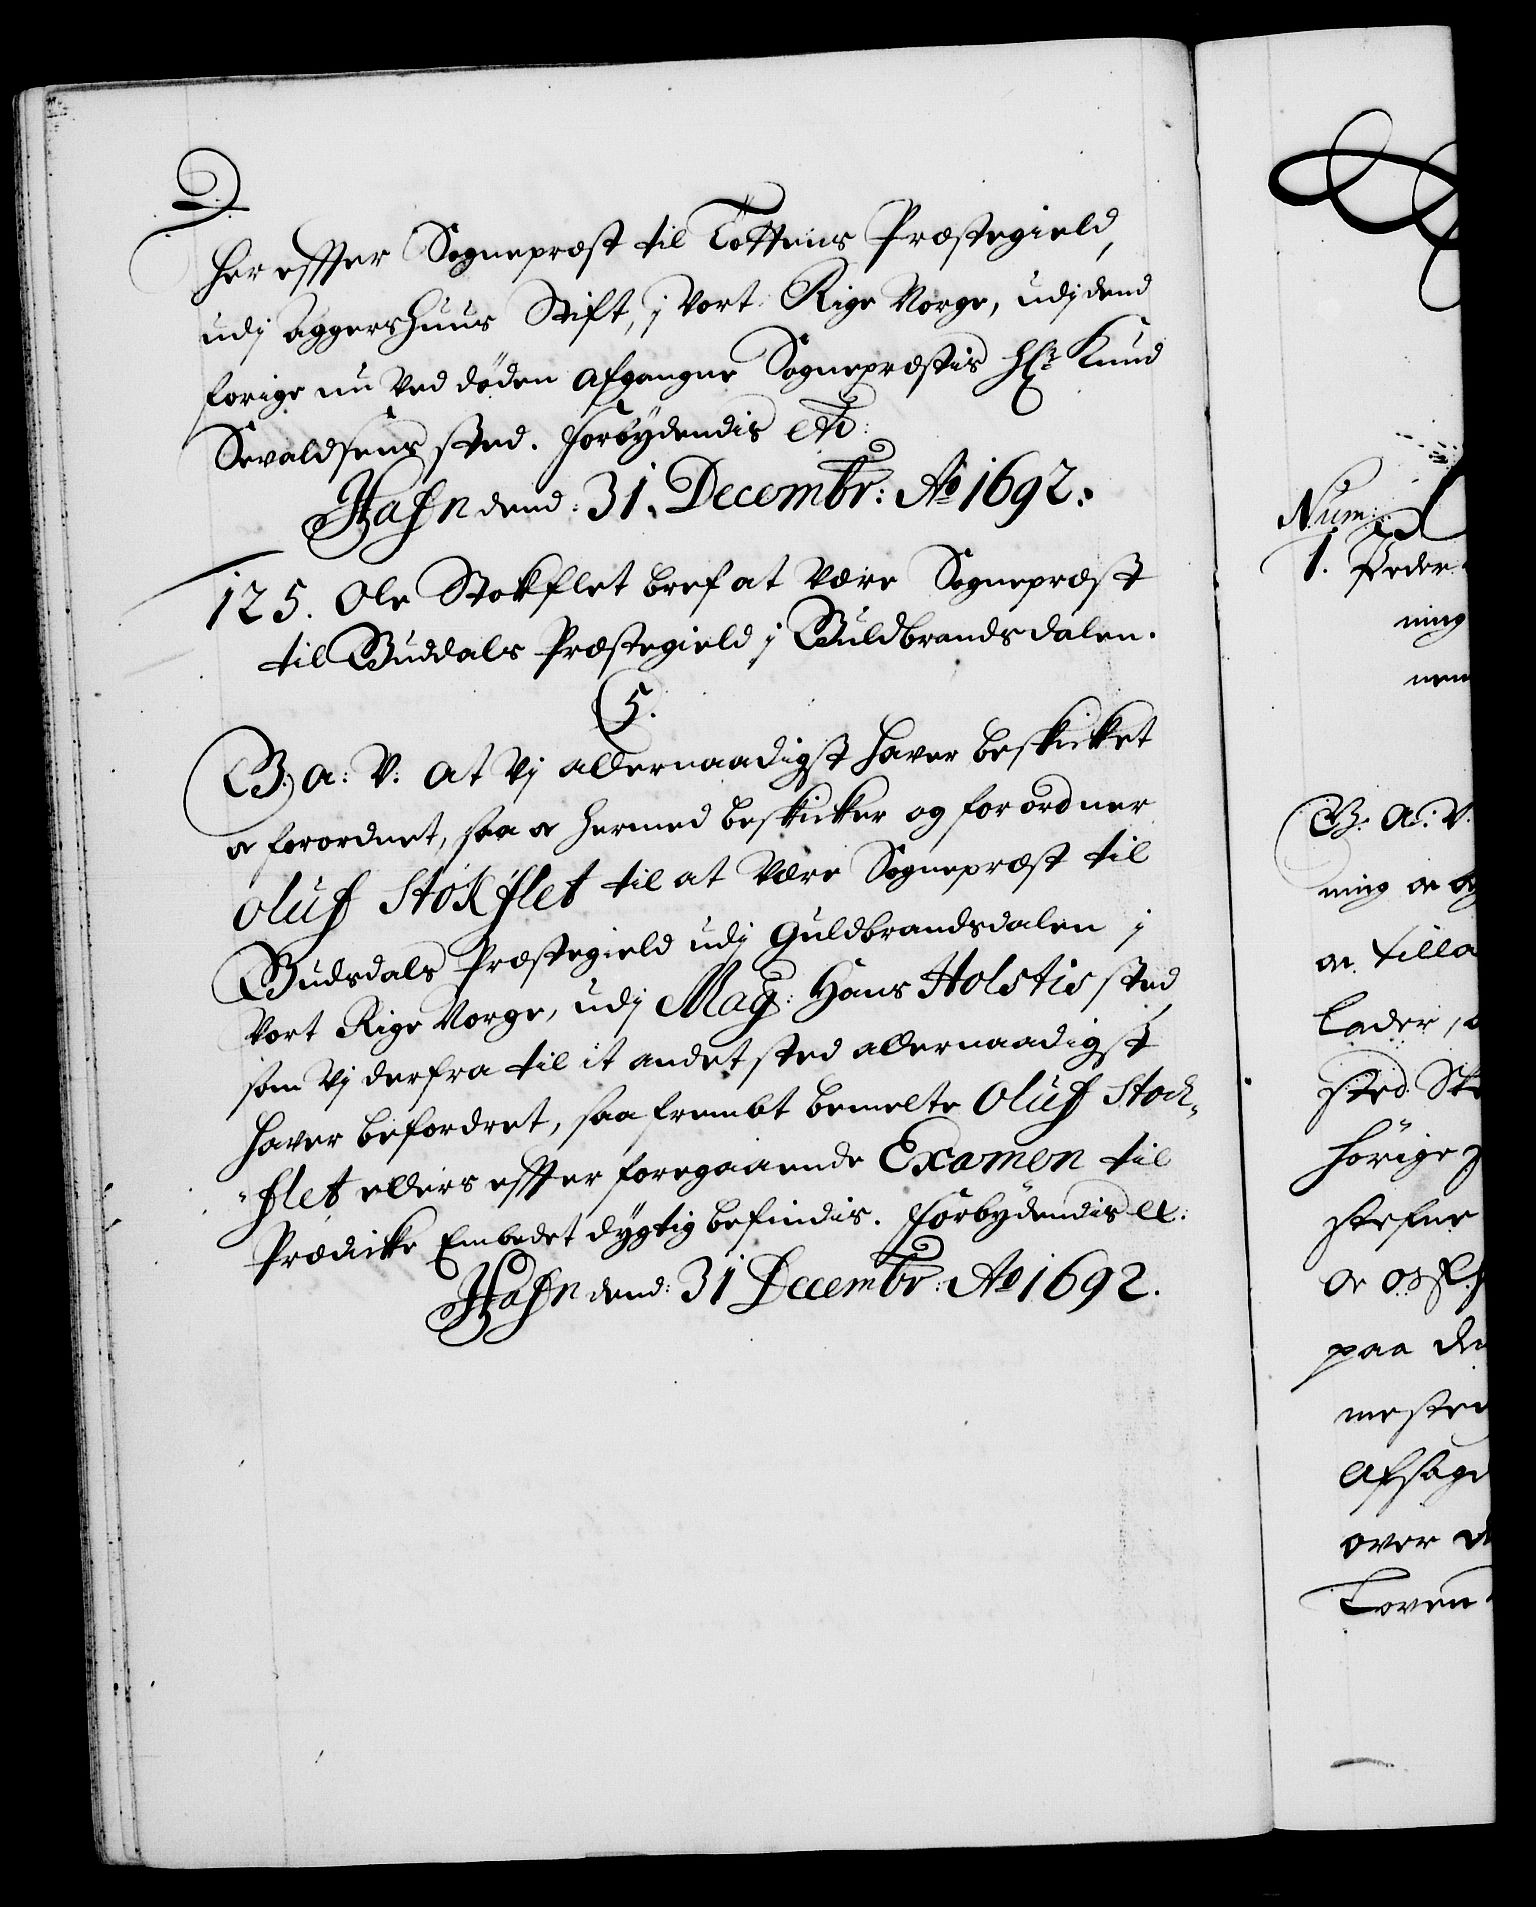 her effter Sognepræst til Tottens Præstegield,
udj Aggershuus Stift, j Vort Rige Norge, udj dend
forige nu Ved døden afgangne Sognepræstis Hr: Knud
Sevaldsens sted. Forbydendis etc:
Hafn dend: 31. Decembr: Ao 1692.
125. Ole Stokflet bref at Være Sognepræst
til Guddals Præstegield j Guldbrandsdalen.
C5.
G. A: V: At Vj allernaadigst haver beskicket
oc forordnet, saa oc hermed beskicker og forordner
Oluf Stokflet til at Være Sognepræst til
Gudsdals Præstegield udj Guldbrandsdalen j
Vort Rige Norge, udj Mag: Hans Holstis sted,
som Vj derfra til it andet sted allernaadigst
haver befordret, saafrembt bemelte Oluf Stock-
-flet ellers effter foregaaende Examen til
Prædicke Embedet dygtig befindis. Forbydendis etc:
Hafn dend: 31 Decembr: Ao 1692.
Num:
1. Peder
ning
nem
G. A: V.
ning oc
oc tilla
Lader,
sted
hörige
stefne
oc
paa den
mested
Afsagd
over
Loven